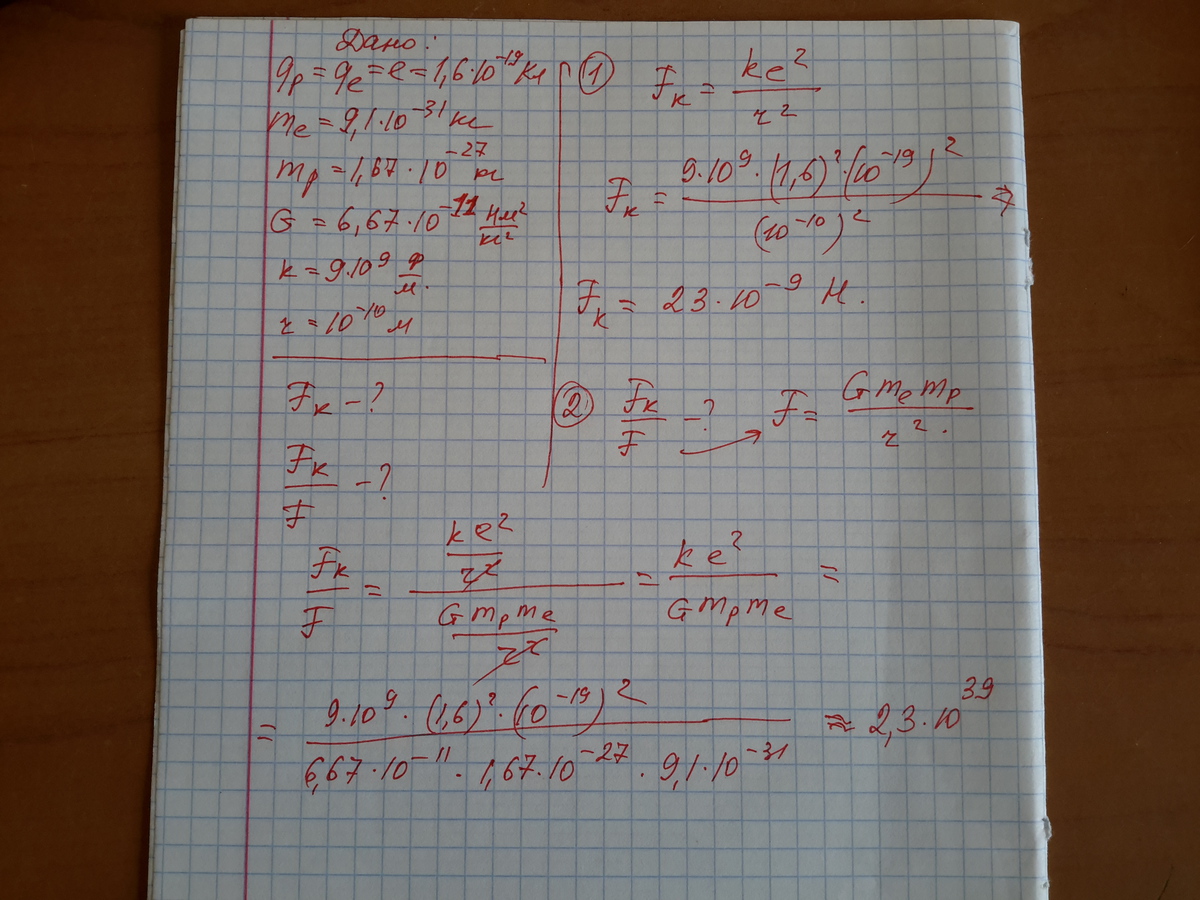 Дано:
q_p = q_e = e = 1,6·10^-19 Кл
m_e = 9,1·10^-31 кг
m_p = 1,67·10^-27 кг
G = 6,67·10^-11 Нм²/кг²
k = 9·10^9 Ф/м.
r = 10^-10 м
F_k - ?
F_k/F - ?
① F_k = ke²/r²
F_k = 9·10^9·(1,6)²·(10^-19)²/(10^-10)² ⇒
F_k = 23·10^-9 Н.
② F_k/F - ? → F = G m_e m_p/r².
F_k/F = (ke²/r²)/(G m_p m_e/r²) = ke²/(G m_p m_e) =
= 9·10^9·(1,6)²·(10^-19)²/(6,67·10^-11·1,67·10^-27·9,1·10^-31) ≈ 2,3·10^39